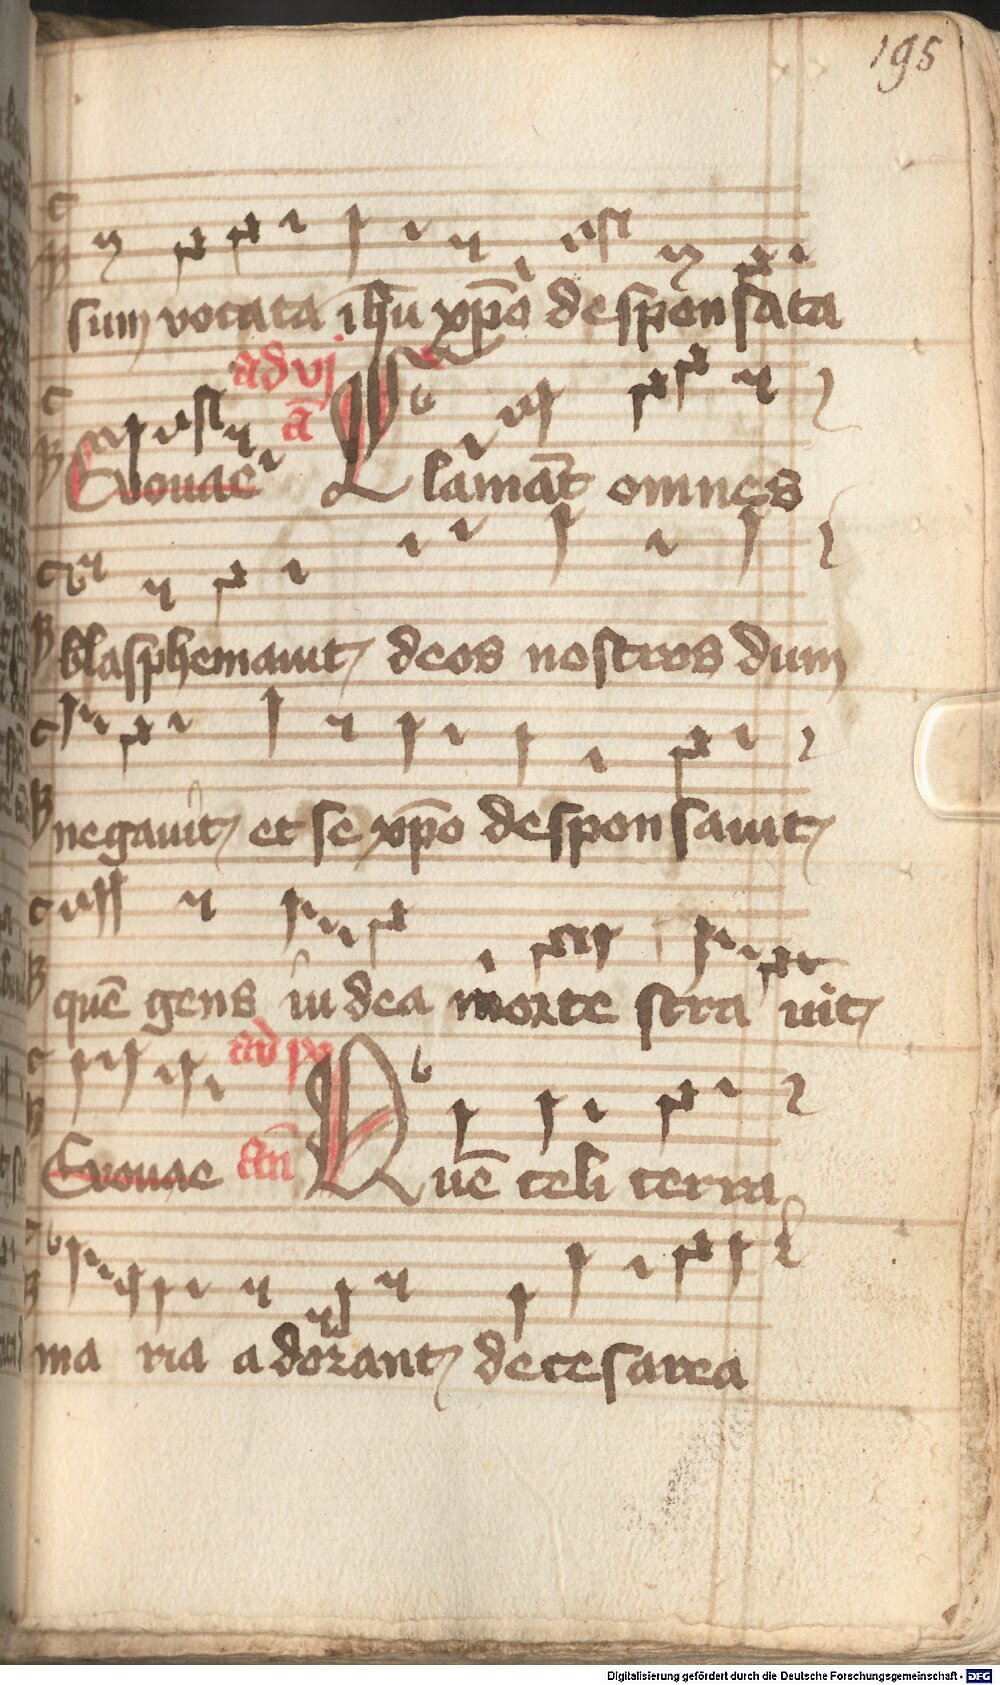 195
sum vocata ihu xpo desponsata
ad vj
Evouae a Clamat omnes
blasphemauit deos nostros dum
negauit et se xpo desponsauit
que gens iudea morte stra uit
ad ix
Evouae an Que celi terra
ma ria adorant de cesarea
Digitalisierung gefördert durch die Deutsche Forschungsgemeinschaft - DFG